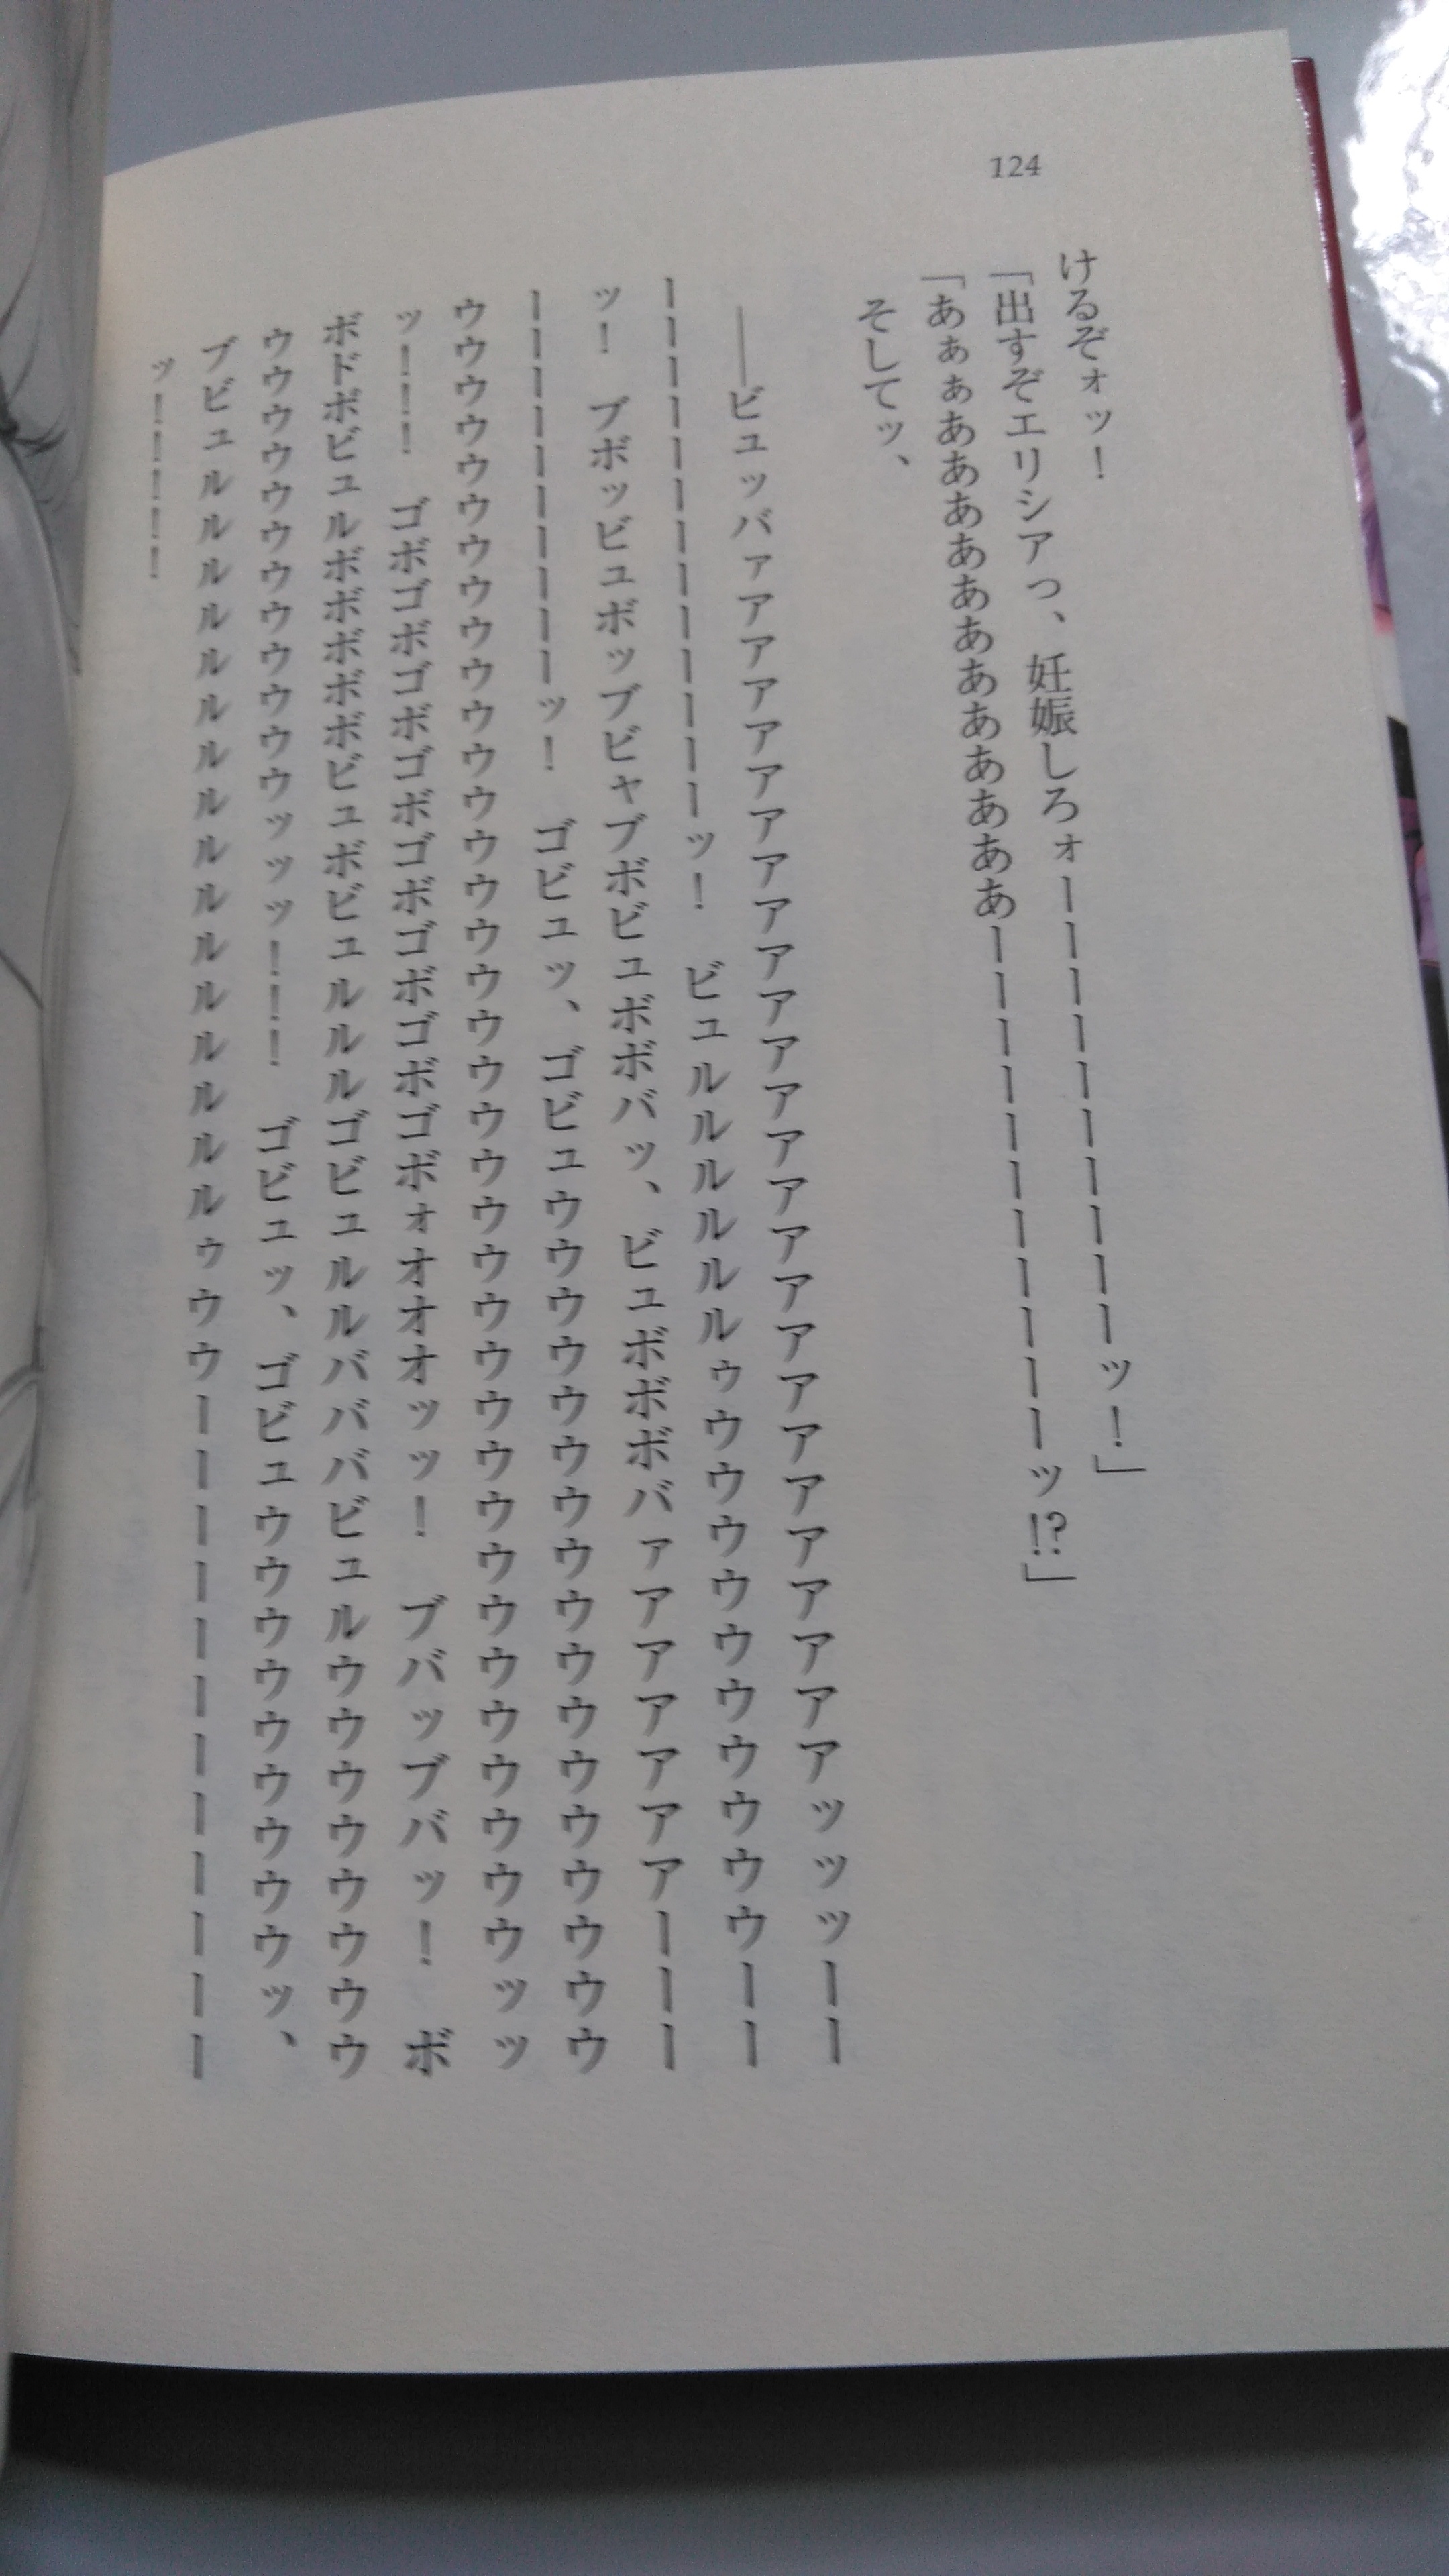 けるぞォッ！
「出すぞエリシアっ、妊娠しろォーーーーーーーーーーッ！」
「あぁぁああああああああああああーーーーーーーーーーーッ!?」
そしてッ、
――ビュッバァアアアアアアアアアアアアアアアアアアアアアアアアアッッッーー
ーーーーーーーーーーーーーーッ！　ビュルルルルルルゥウウウウウウウウウウーー
ッ！　ブボッビュボッブビャブボビュボボバッ、ビュボボボバァアアアアアアーーー
ーーーーーーーーーーッ！　ゴビュッ、ゴビュウウウウウウウウウウウウウウウウウ
ウウウウウウウウウウウウウウウウウウウウウウウウウウウウウウウウウウウウッッ
ッ！！！　ゴボゴボゴボゴボゴボゴボゴボゴボォオオオッッ！　ブバッブバッ！　ボ
ボドボビュルボボボボボビュボビュルルルゴビュルルバババビュルウウウウウウウウ
ウウウウウウウウウウウウッッッ！！！　ゴビュッ、ゴビュウウウウウウウウウッ、
ブビュルルルルルルルルルルルルルルルルゥウウーーーーーーーーーーーー
ッ！！！！！